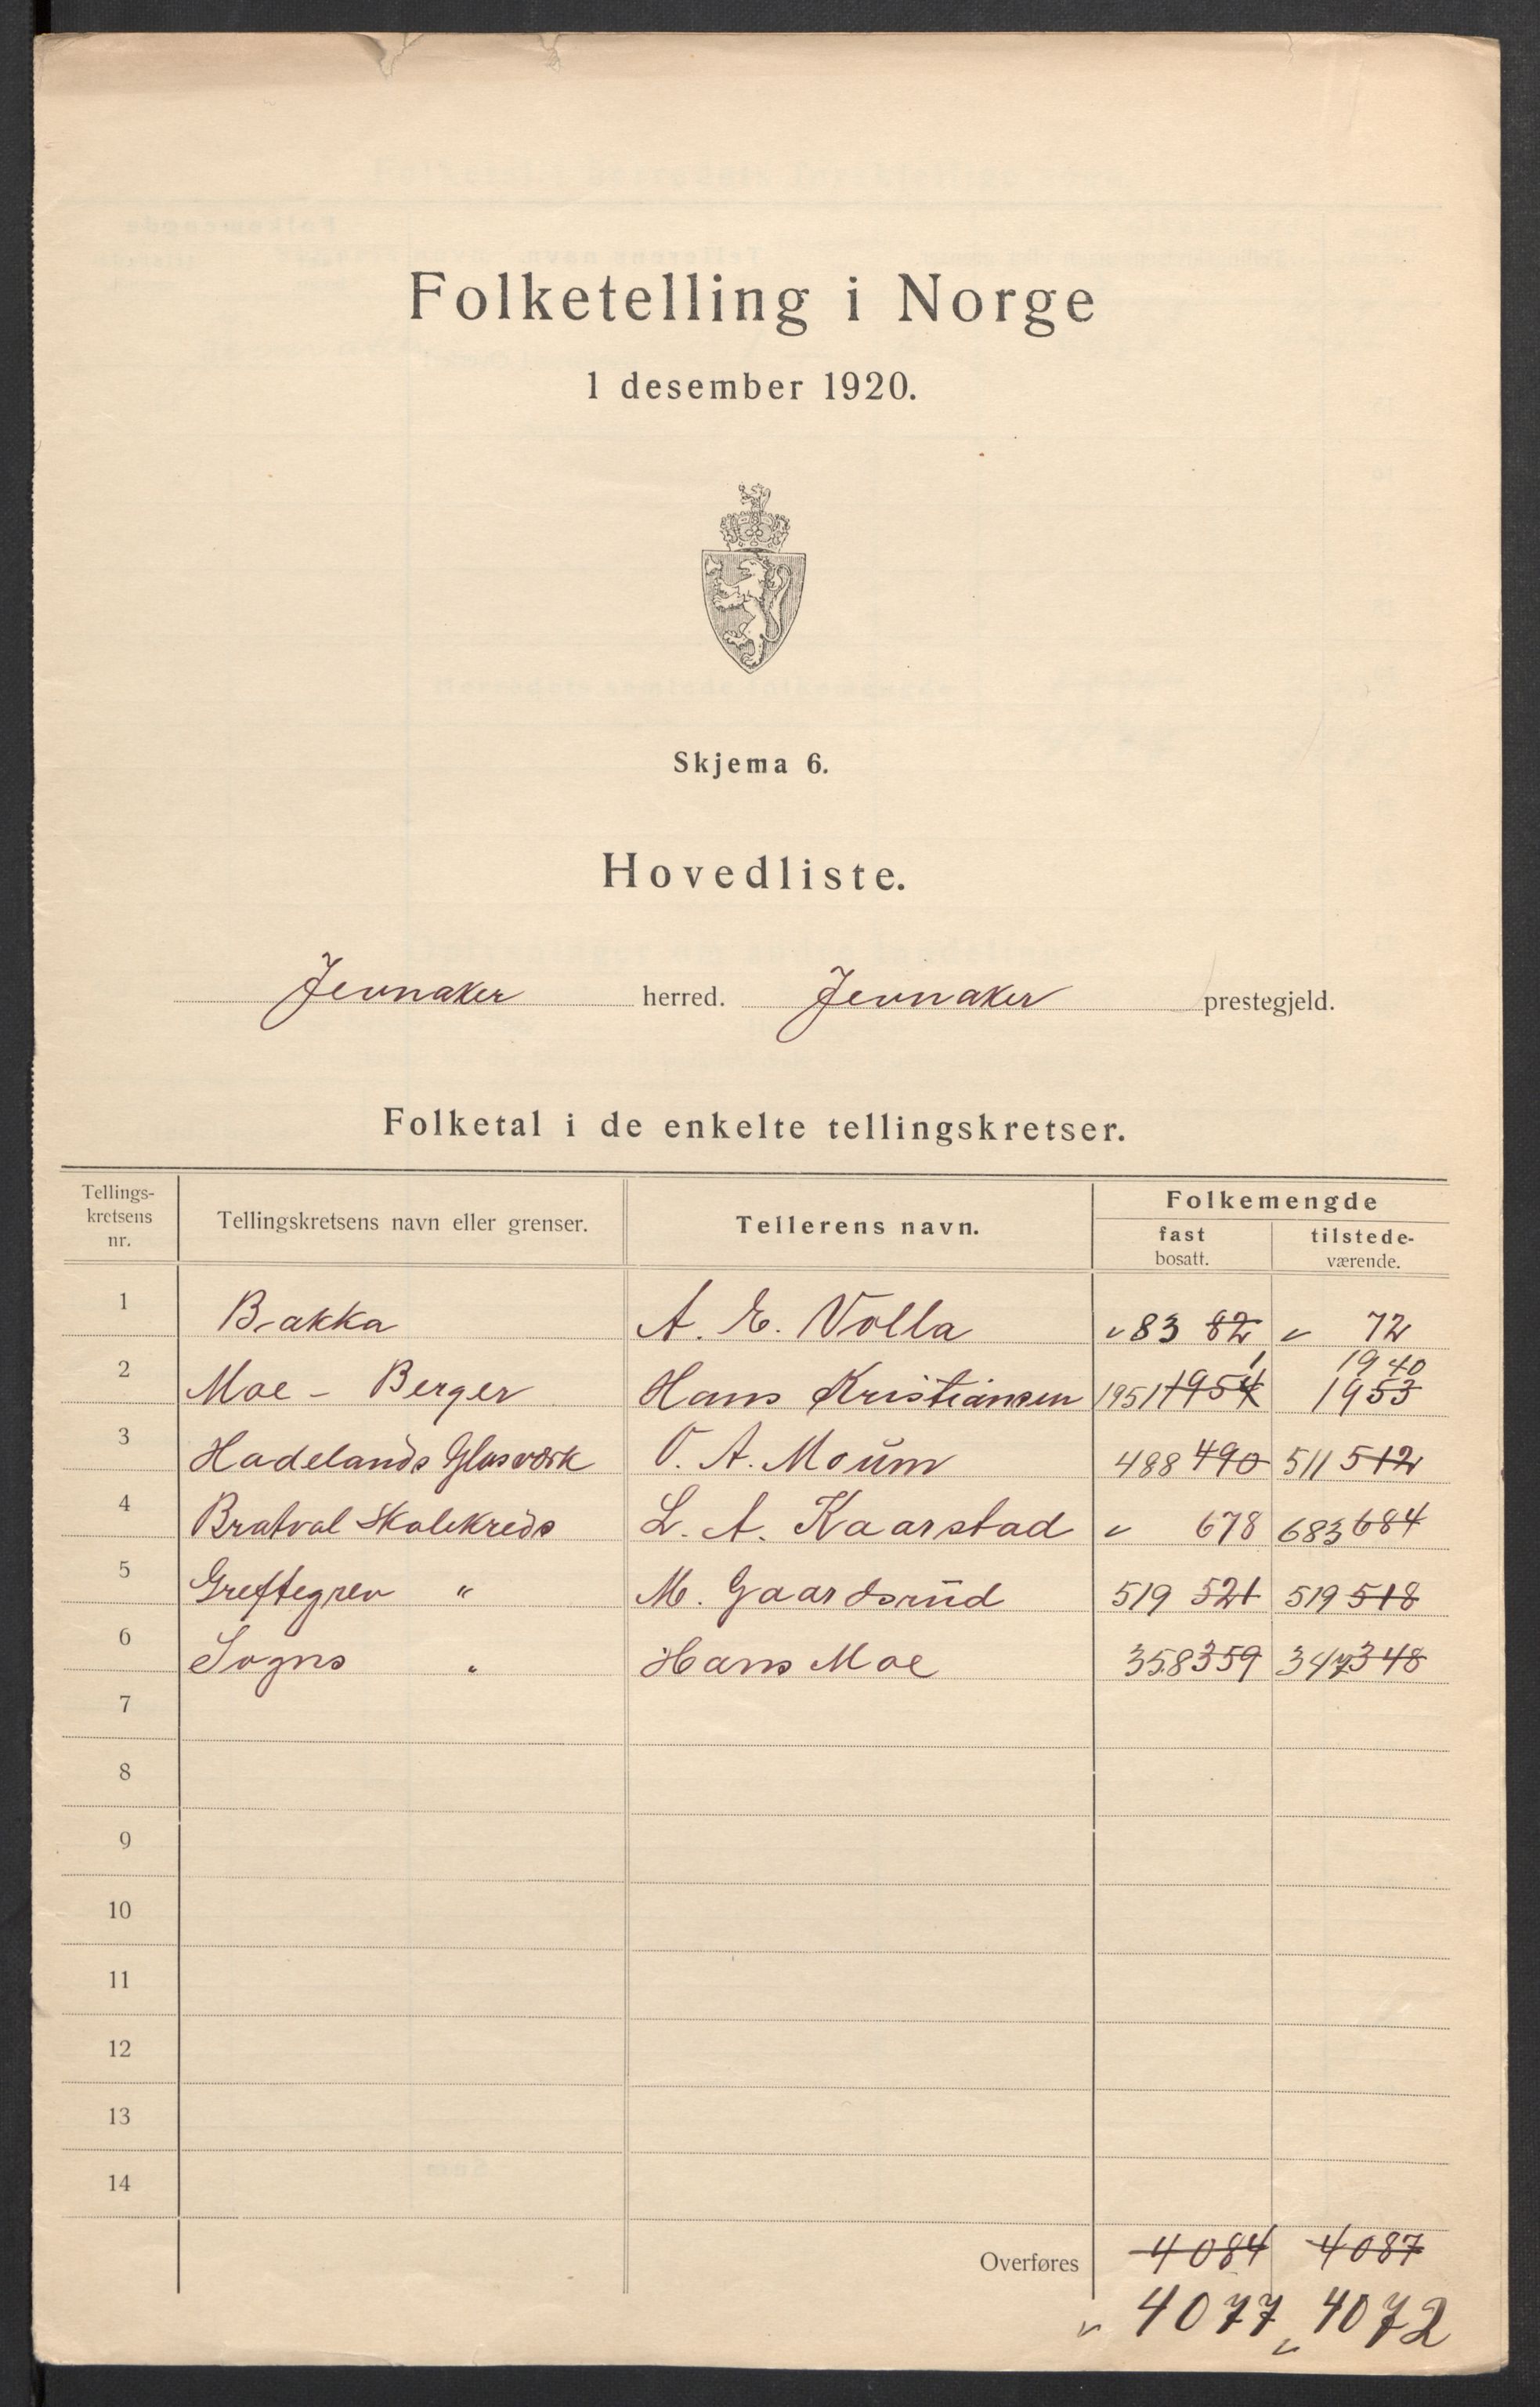 Folketelling i Norge
1 desember 1920.
Skjema 6.
Hovedliste.
Jevnaker herred. Jevnaker prestegjeld.
Folketal i de enkelte tellingskretser.
Tellings-
kretsens
nr.
Tellingskretsens navn eller grenser.
Tellerens navn.
Folkemengde
fast
bosatt.
tilstede-
værende.
1 Bakka A. E. Volla v 83 82 v 72
2 Moe - Berger Hans Kristiansen 1951 1954 1 1940 1953
3 Hadelands Glasværk O. A. Moum 488 490 511 512
4 Bratval Skolekreds L. A. Kaarstad v 678 683 684
5 Greftegrev " M. Gaardsrud 519 521 519 518
6 Sogns " Hans Moe 358 359 347 348
7
8
9
10
11
12
13
14
Overføres 4084 4087
v 4077 v 4072